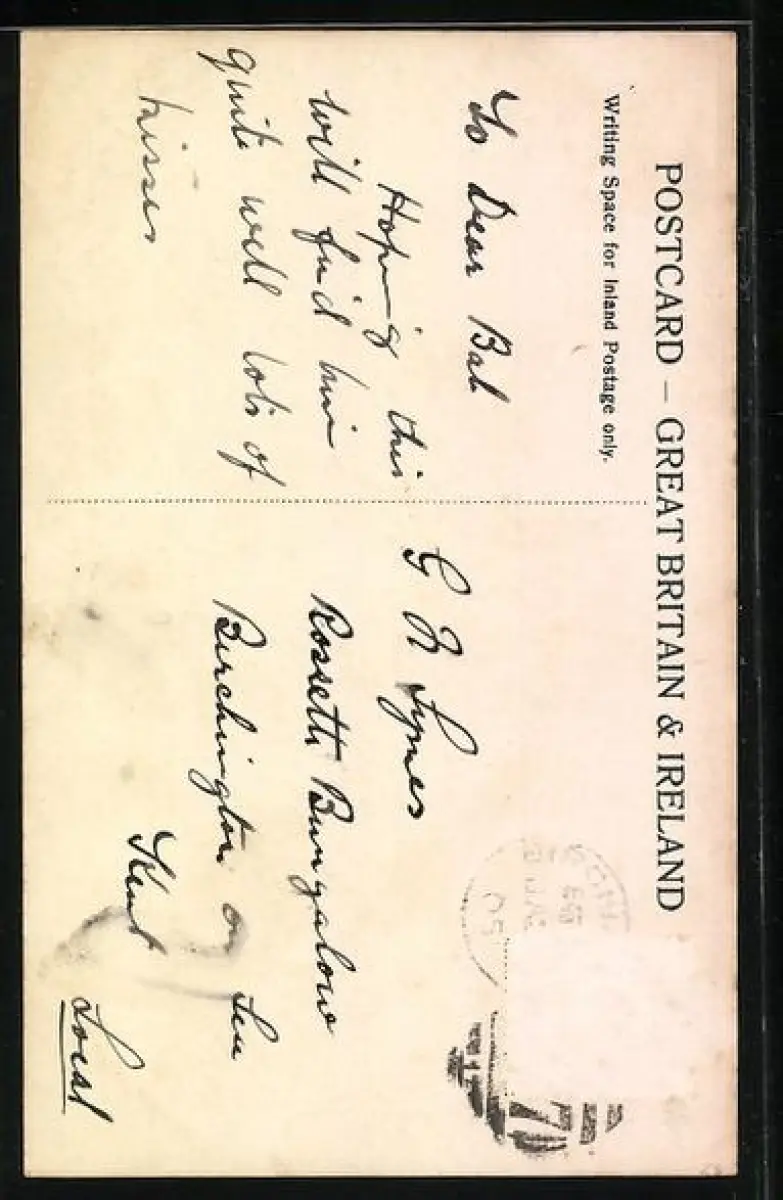 POSTCARD – GREAT BRITAIN & IRELAND
Writing Space for Inland Postage only.
To Dear Bab
Hoping this
will find him
quite well lots of
kisses
G R Synes
Rossetti Bungalow
Birchington on Sea
Kent
Local